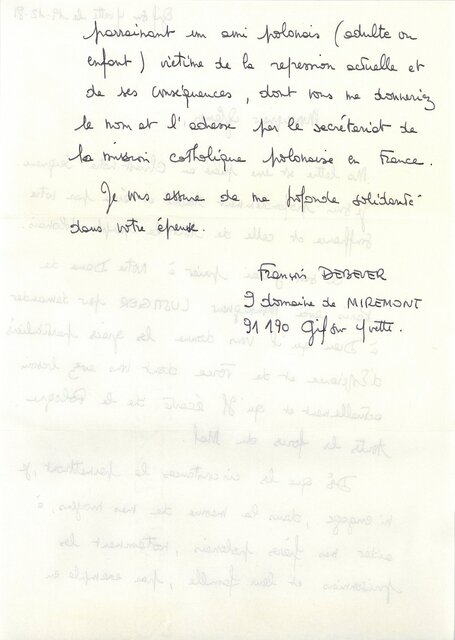 parrainant un ami polonais (adulte ou
enfant) victime de la repression actuelle et
de ses conséquences, dont vous me donneriez
le nom et l'adresse par le secrétariat de
la mission catholique polonaise en France.
Je vous assure de ma profonde solidarité
dans votre épreuve.
François DEBEVER
9 domaine de MIREMONT
91190 Gif sur Yvette.